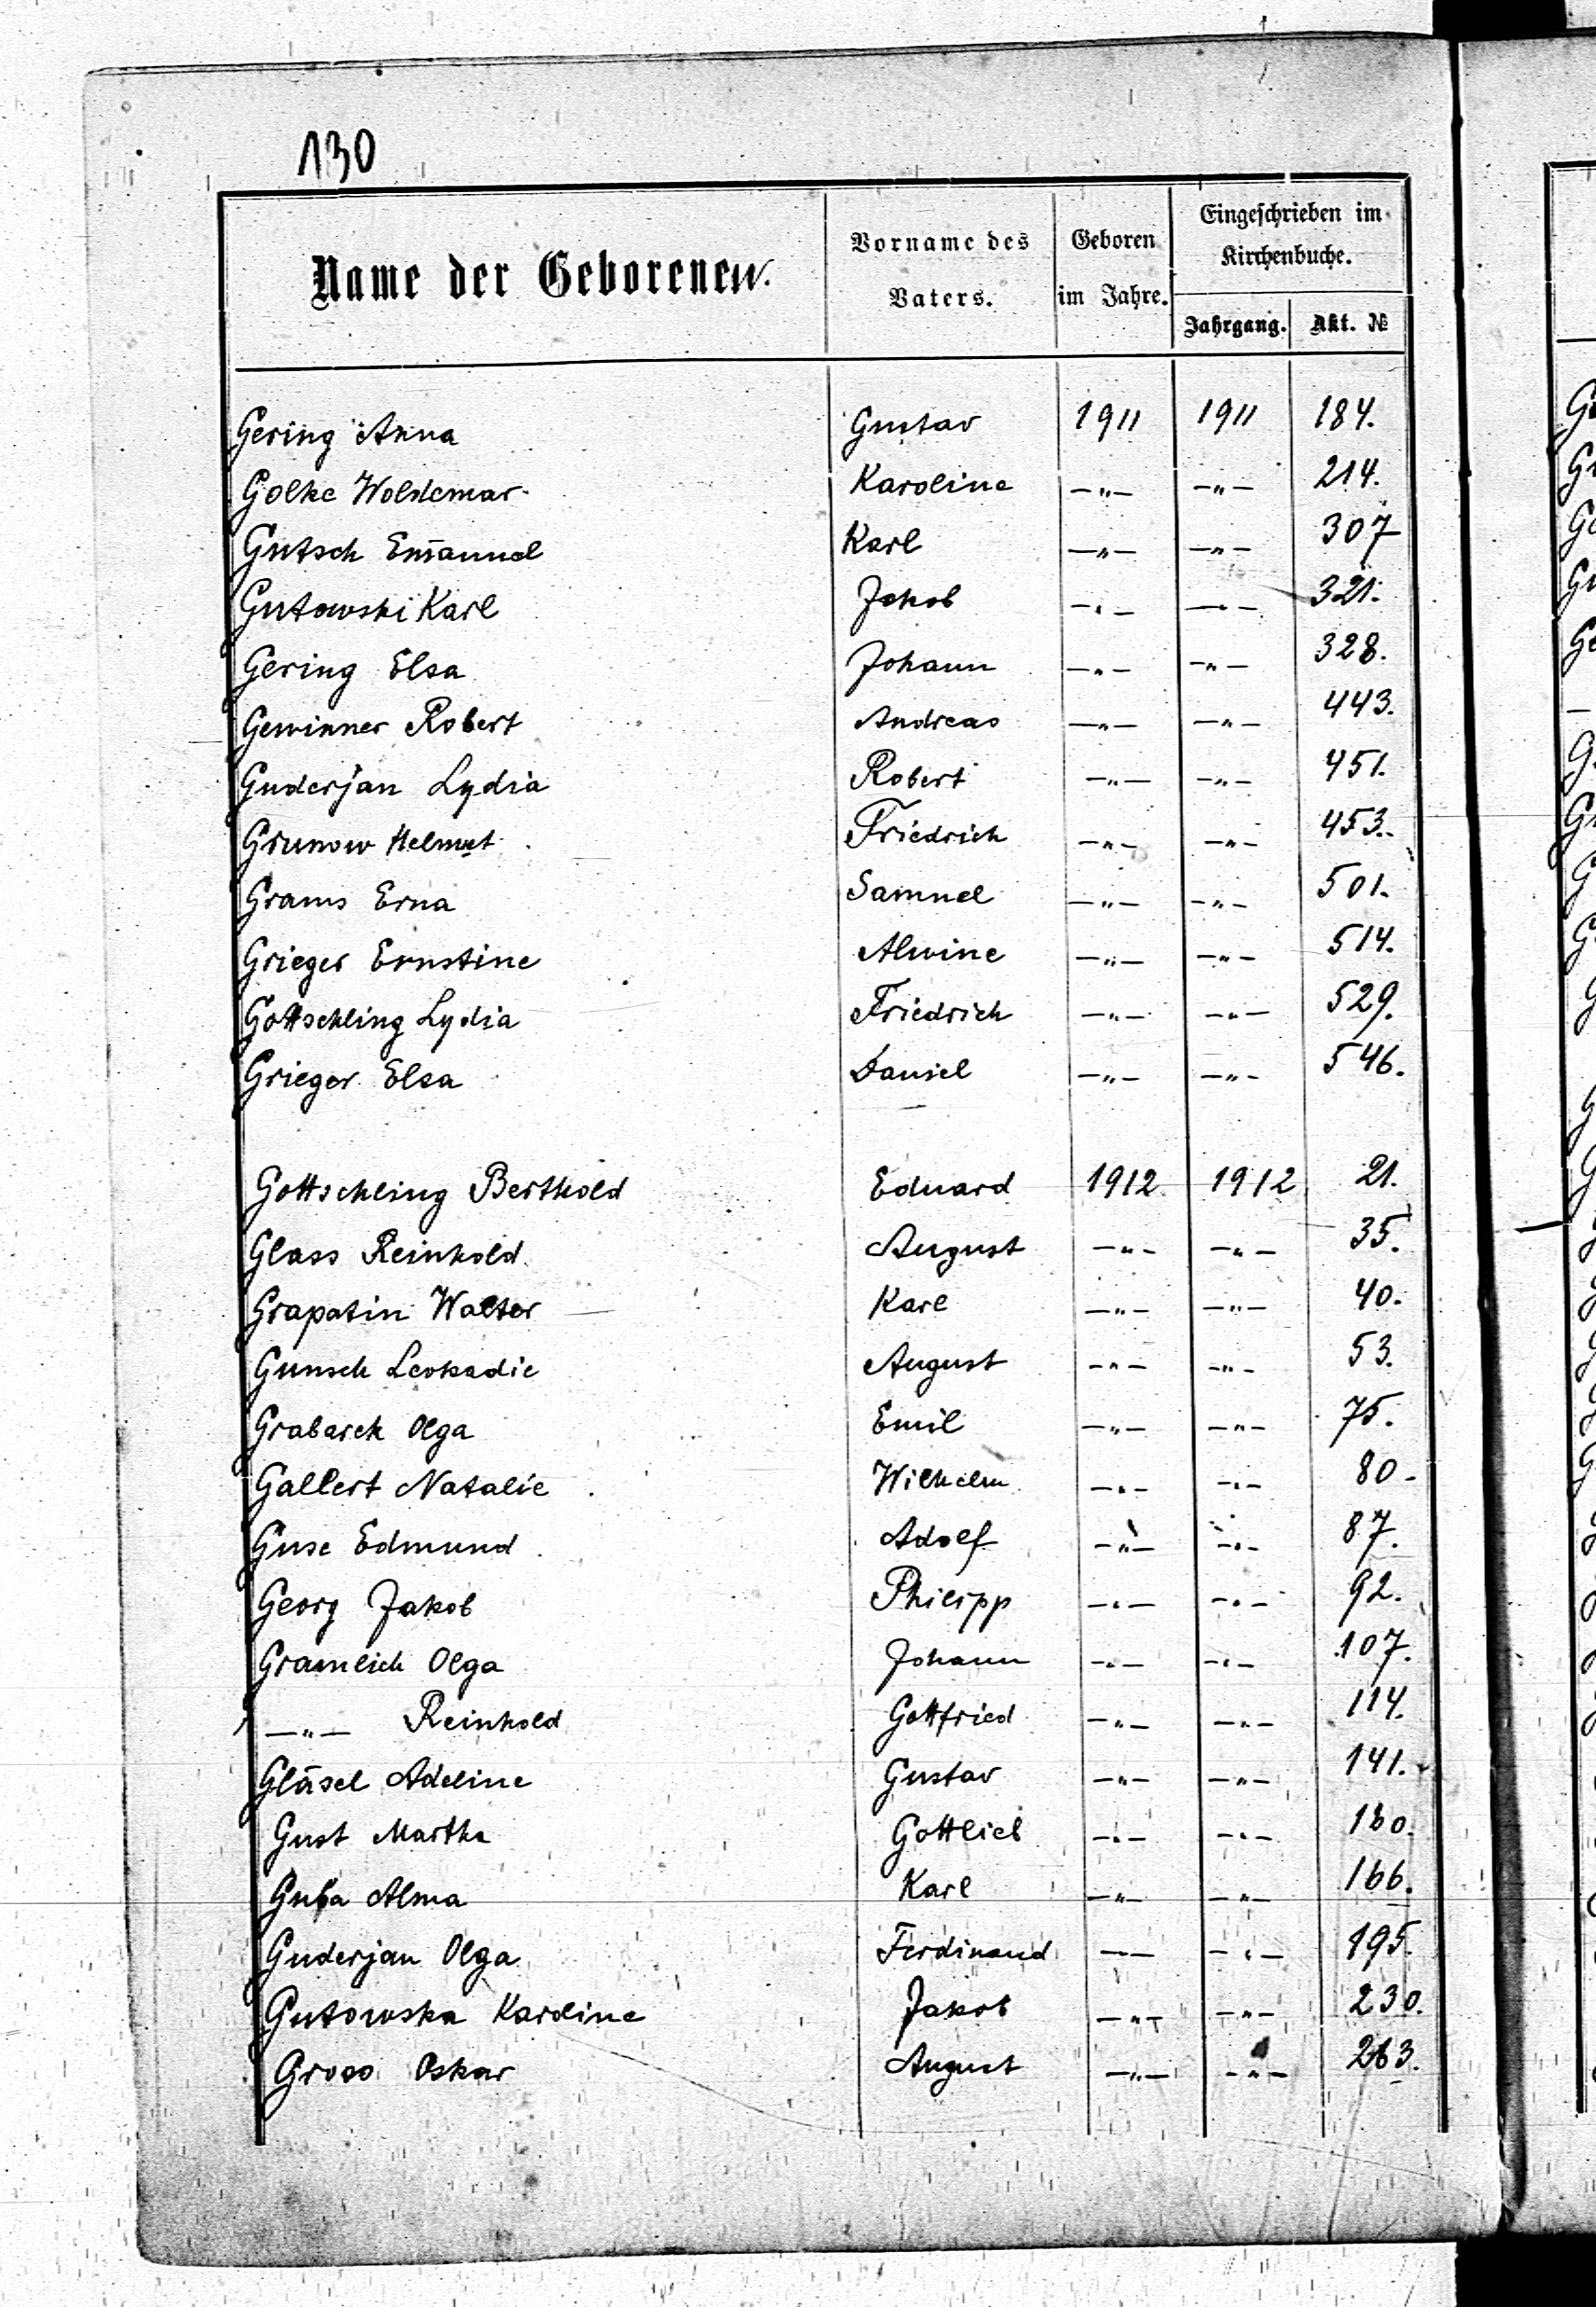 130
Name der Geborenen.
Vorname des Vaters.
Geboren im Jahre.
Eingeschrieben im Kirchenbuche.
Jahrgang. Akt. №
Gering Anna Gustav 1911 1911 184.
Golke Woldemar Karoline —"— —"— 214.
Gutsch Emanuel Karl —"— —"— 307
Gutowski Karl Jakob —"— —"— 321.
Gering Elsa Johann —"— —"— 328.
Gewinner Robert Andreas —"— —"— 443.
Guderjan Lydia Robert —"— —"— 451.
Grunow Helmut Friedrich —"— —"— 453.
Grams Erna Samuel —"— —"— 501.
Grieger Ernstine Alwine —"— —"— 514.
Gottschling Lydia Friedrich —"— —"— 529.
Grieger Elsa Daniel —"— —"— 546.
Gottschling Berthold Eduard 1912 1912 21.
Glass Reinhold August —"— —"— 35.
Grapatin Walter Karl —"— —"— 40.
Gunsch Leokadie August —"— —"— 53.
Grabarek Olga Emil —"— —"— 75.
Gallert Natalie Wilhelm —"— —"— 80.
Guse Edmund Adolf —"— —"— 87.
Georg Jakob Philipp —"— —"— 92.
Gramlich Olga Johann —"— —"— 107.
—"— Reinhold Gottfried —"— —"— 114.
Gläsel Adeline Gustav —"— —"— 141.
Gust Martha Gottlieb —"— —"—
Alma Karl —"— —"— 166.
Guderjan Olga Ferdinand —"— —"— 195.
Gutowska Karoline Jakob —"— —"— 230.
Gross Oskar August —"— —"— 263.